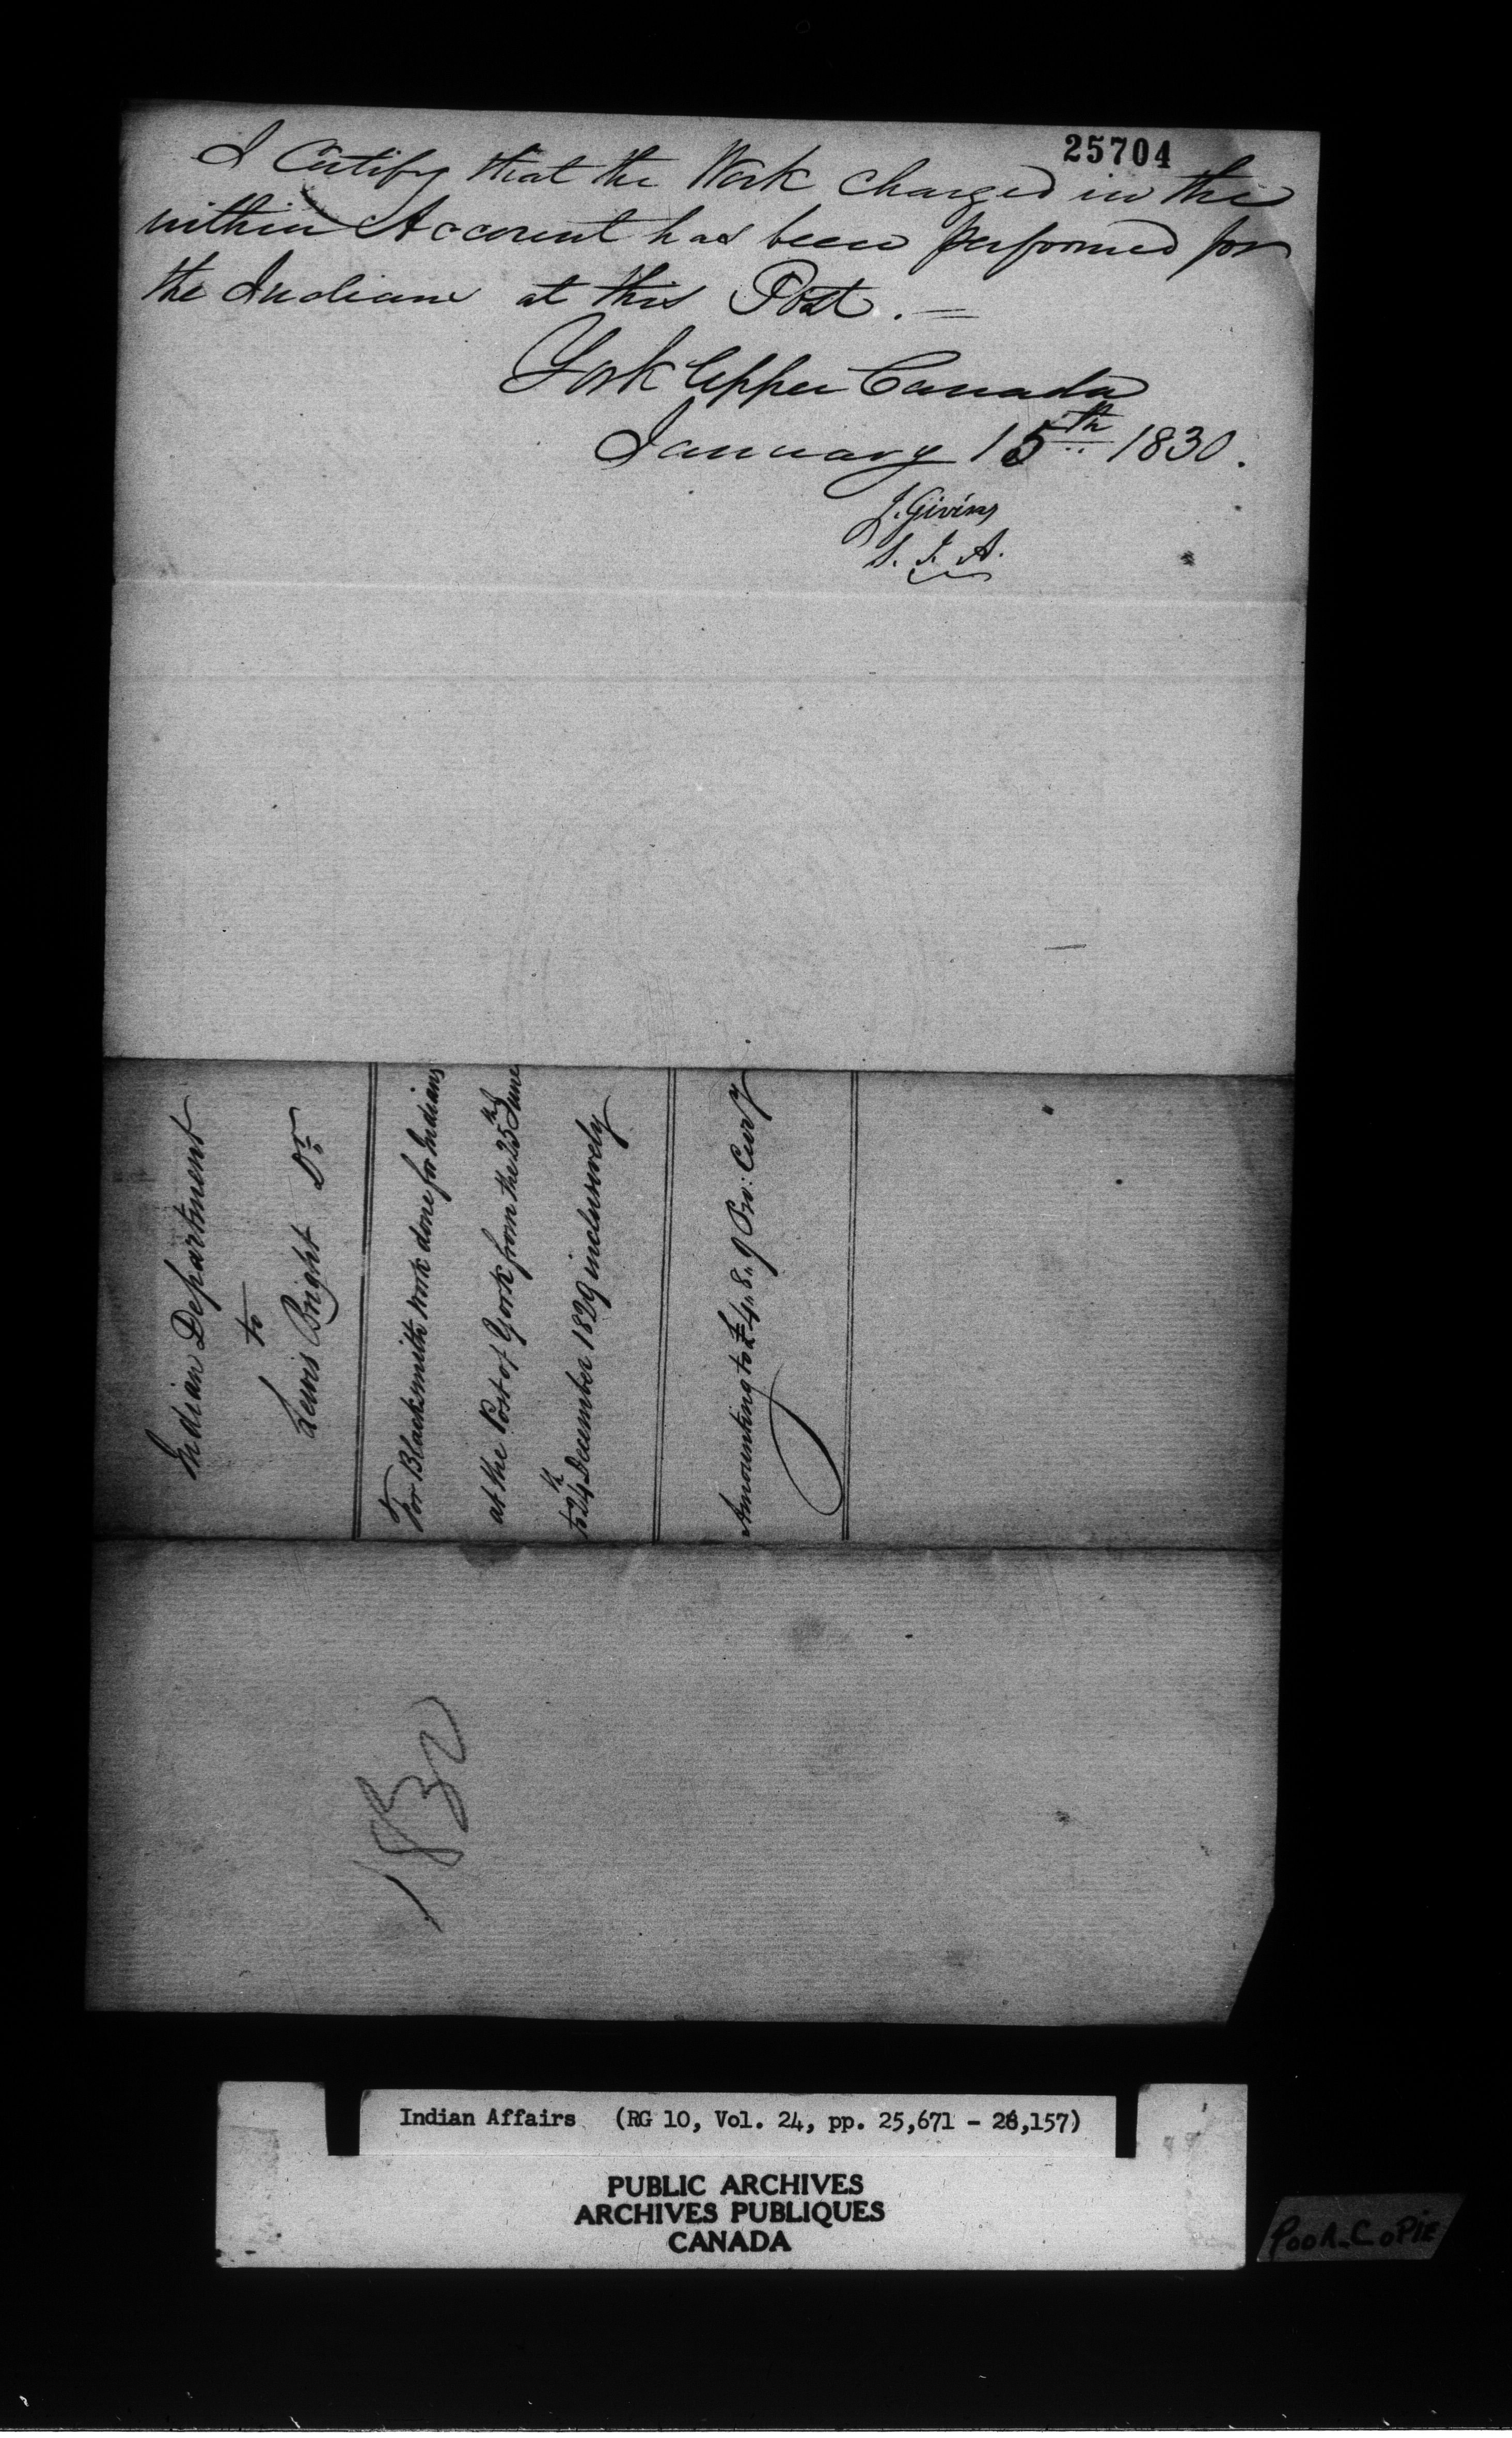 25704
I Certify that the Work charged in the
within Account has been performed for
the Indians at this Post.
York Upper Canada
January 15th 1830.
J. Givins
S. I. A.
Indian Department
to
Lewis Bright Dr
For Blacksmith work done for Indians
at the Post of York from the 25th June
to 24th December 1829 inclusively
Amounting to £4,, 8,, 9 Pro: Cury
1832
Indian Affairs (RG 10, Vol. 24, pp. 25,671 - 26,157)
PUBLIC ARCHIVES
ARCHIVES PUBLIQUES
CANADA
POOR-COPIE